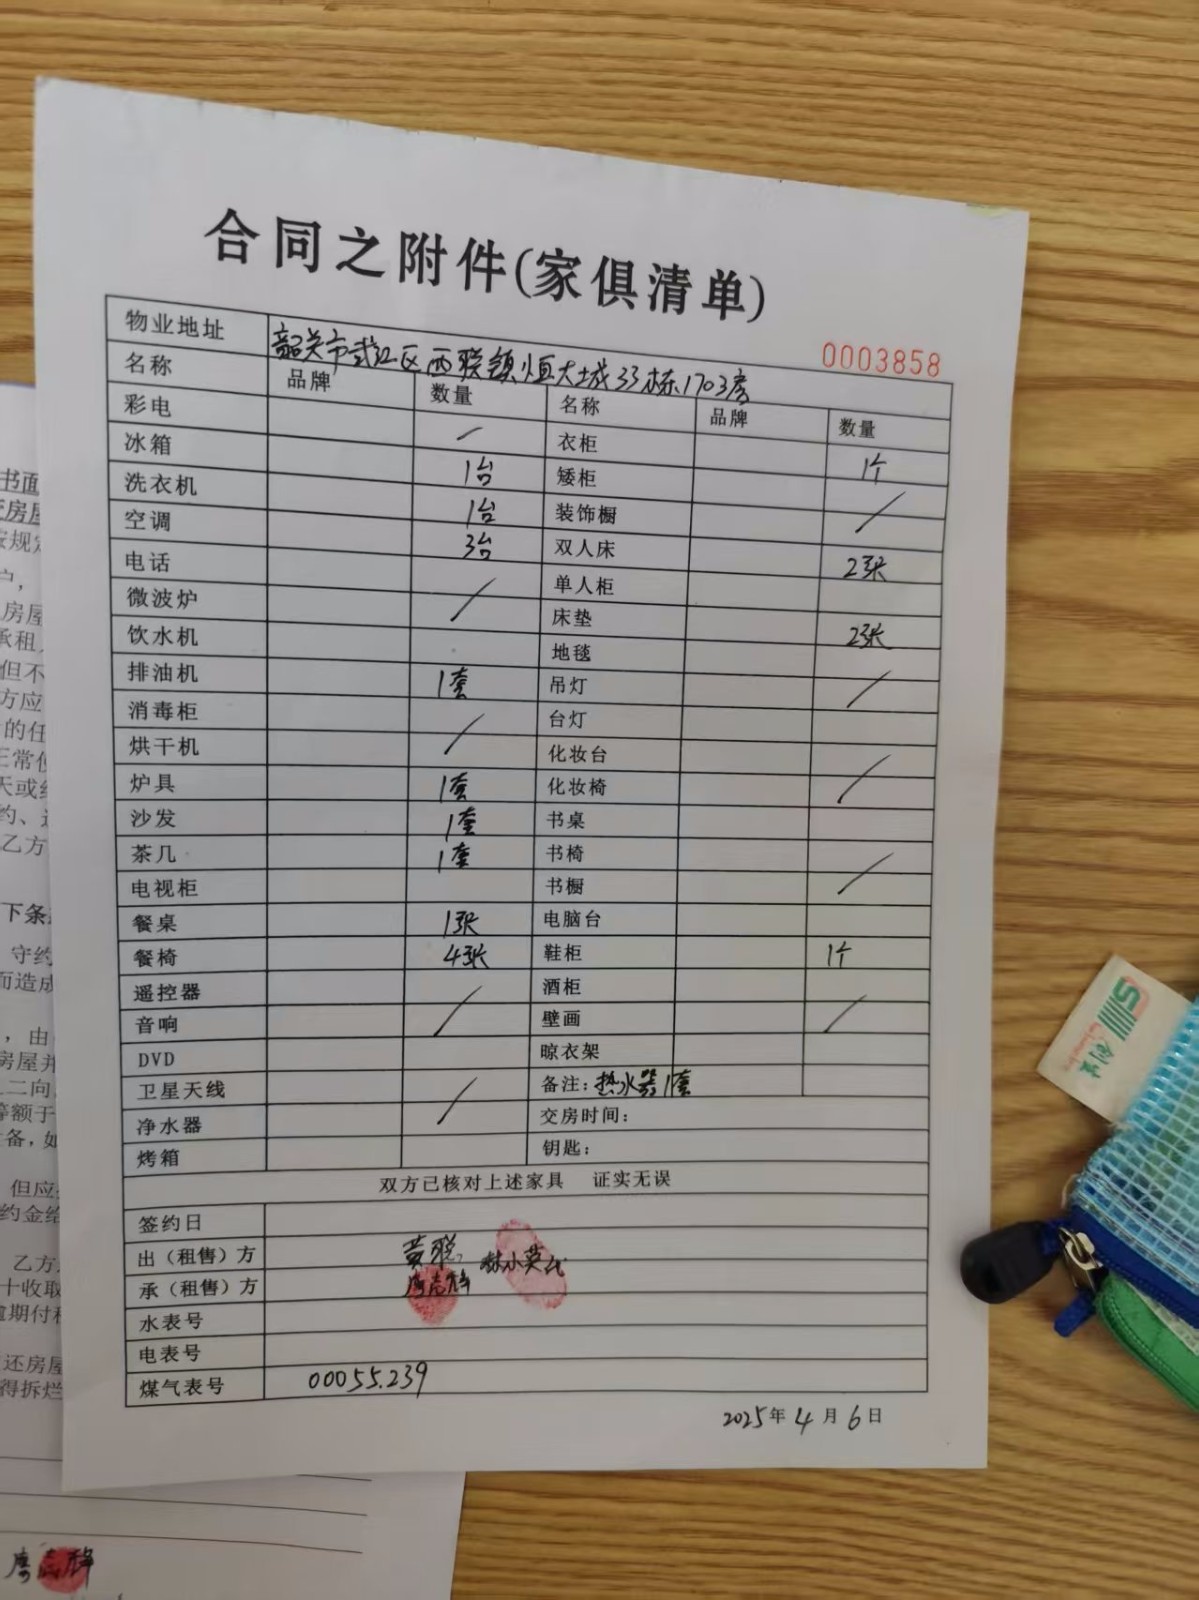 合同之附件(家俱清单)
0003858
物业地址 韶关市武江区西联镇恒大城33栋1703房
名称 品牌 数量 名称 品牌 数量
彩电 / 衣柜 1个
冰箱 1台 矮柜
洗衣机 1台 装饰橱 /
空调 3台 双人床 2张
电话 单人柜
微波炉 / 床垫 2张
饮水机 地毯
排油机 1套 吊灯 /
消毒柜 台灯
烘干机 / 化妆台
炉具 1套 化妆椅 /
沙发 1套 书桌
茶几 1套 书椅
电视柜 书橱 /
餐桌 1张 电脑台
餐椅 4张 鞋柜 1个
遥控器 酒柜
音响 / 壁画 /
DVD 晾衣架
卫星天线 备注:热水器1套
净水器 / 交房时间:
烤箱 钥匙:
双方已核对上述家具 证实无误
签约日
出(租售)方 黄聪 林小英代
承(租售)方 廖志锋
水表号
电表号
煤气表号 00055.239
2025年4月6日
书面
房屋
按规定
户,
房屋
承租
但不
方应
的任
正常使
天或
约、
乙方
下条
守约
而造成
,由
房屋并
二向
等额于
备,如
但应
约金给
乙方
十收取
逾期付
还房屋
得拆烂
廖志锋